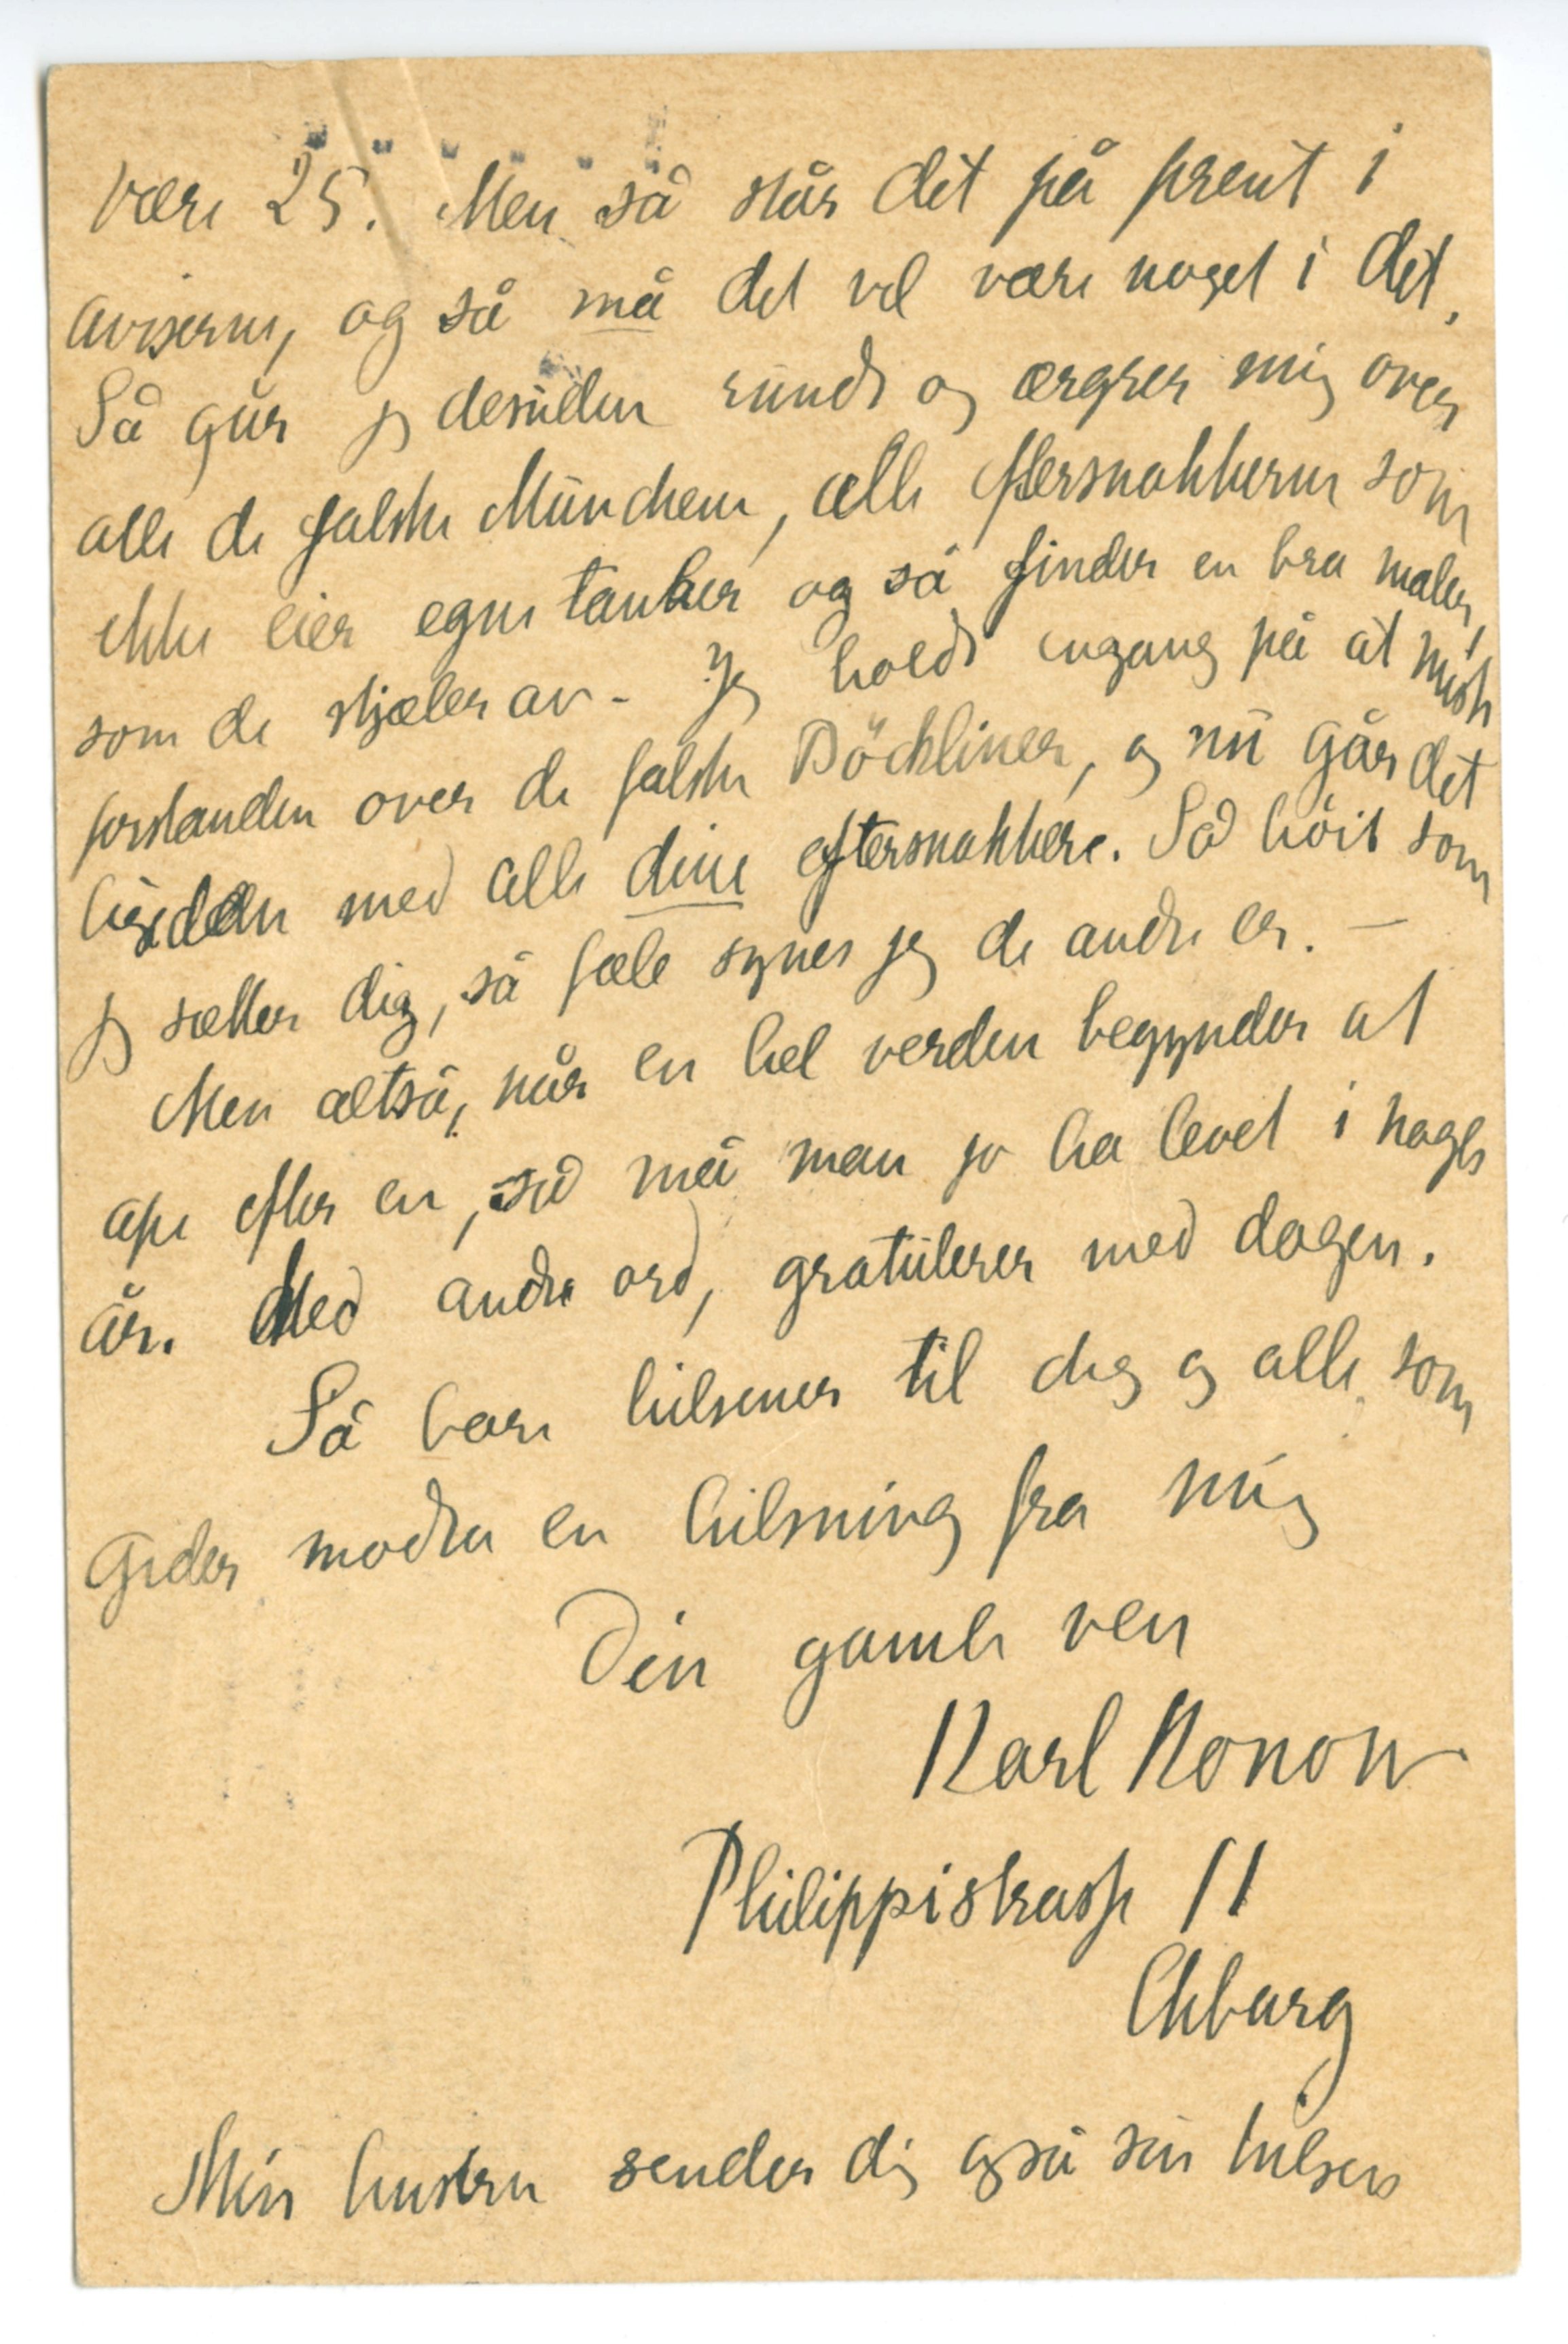 være 25. Men så står det på prent i
aviserne, og så må det vel være noget i det.
Så går jeg desuden rundt og ærgrer mig over
alle de falske Münchene, alle eftersnakkerne som
ikke eier egne tanker og så finder en bra maler,
som de stjæler av - Jeg holdt engang på at miste
forstanden over de falske Böckliner, og nu går det
ligedan med alle dine eftersnakkere. Så høit som
jeg sætter dig, så fæle synes jeg de andre er. —
Men altså, når en hel verden begynder at
ape efter en, så må man jo ha levet i nogle
år. Med andre ord, gratulerer med dagen.
Så bare hilsener til dig og alle som
gider motta en hilsning fra mig
Din gamle ven
Karl Konow
Philippistrasse 11
Chburg
Min hustru sender dig også sin hilsen